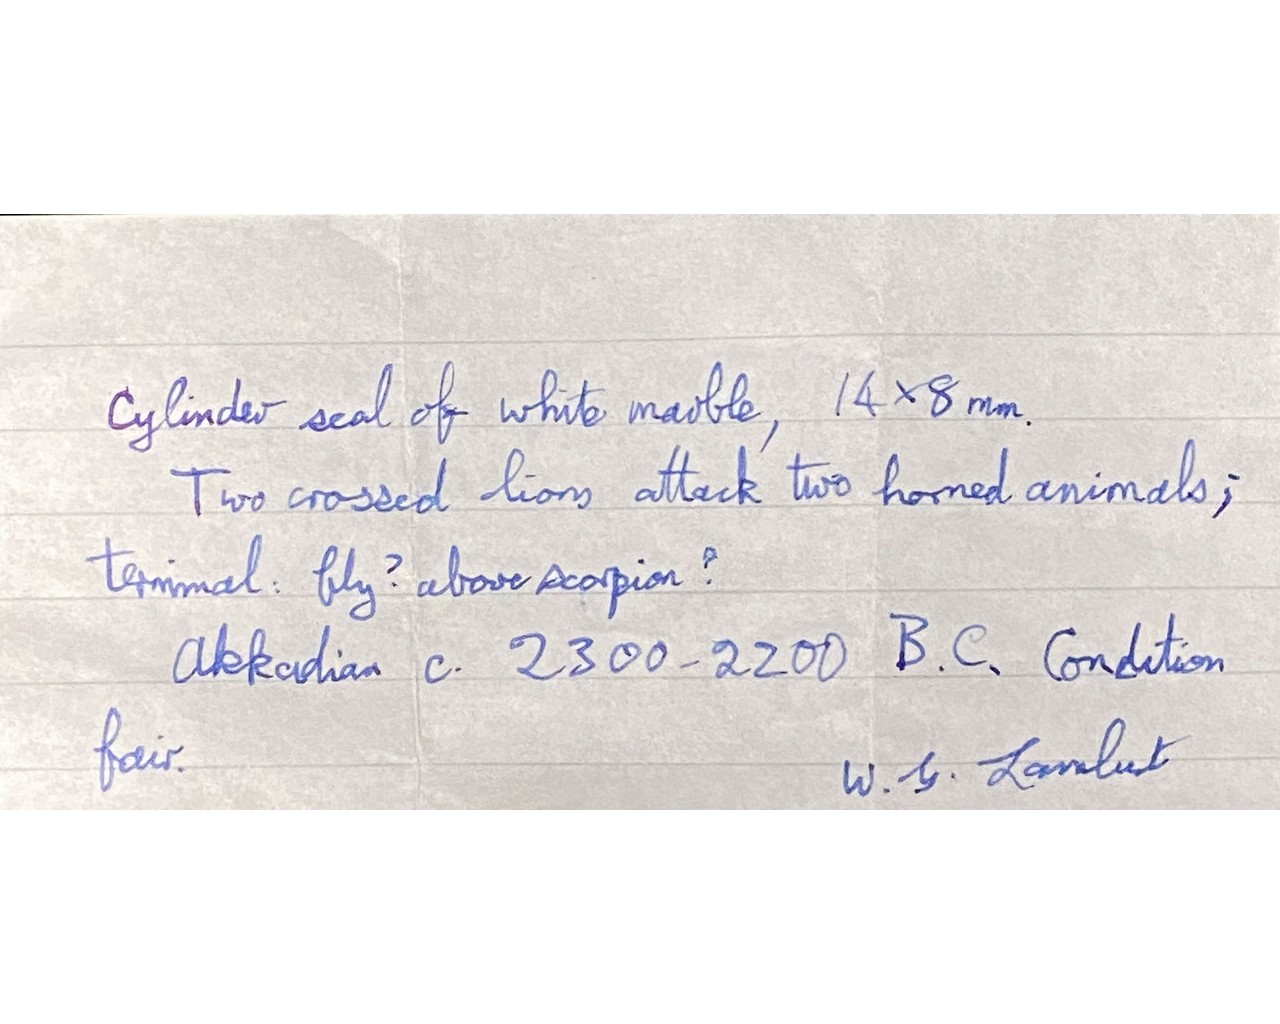 Cylinder seal of white marble, 14×8 mm.
Two crossed lions attack two horned animals;
terminal: fly? above scorpion?
Akkadian c. 2300-2200 B.C. Condition
fair.
W. G. Lambert